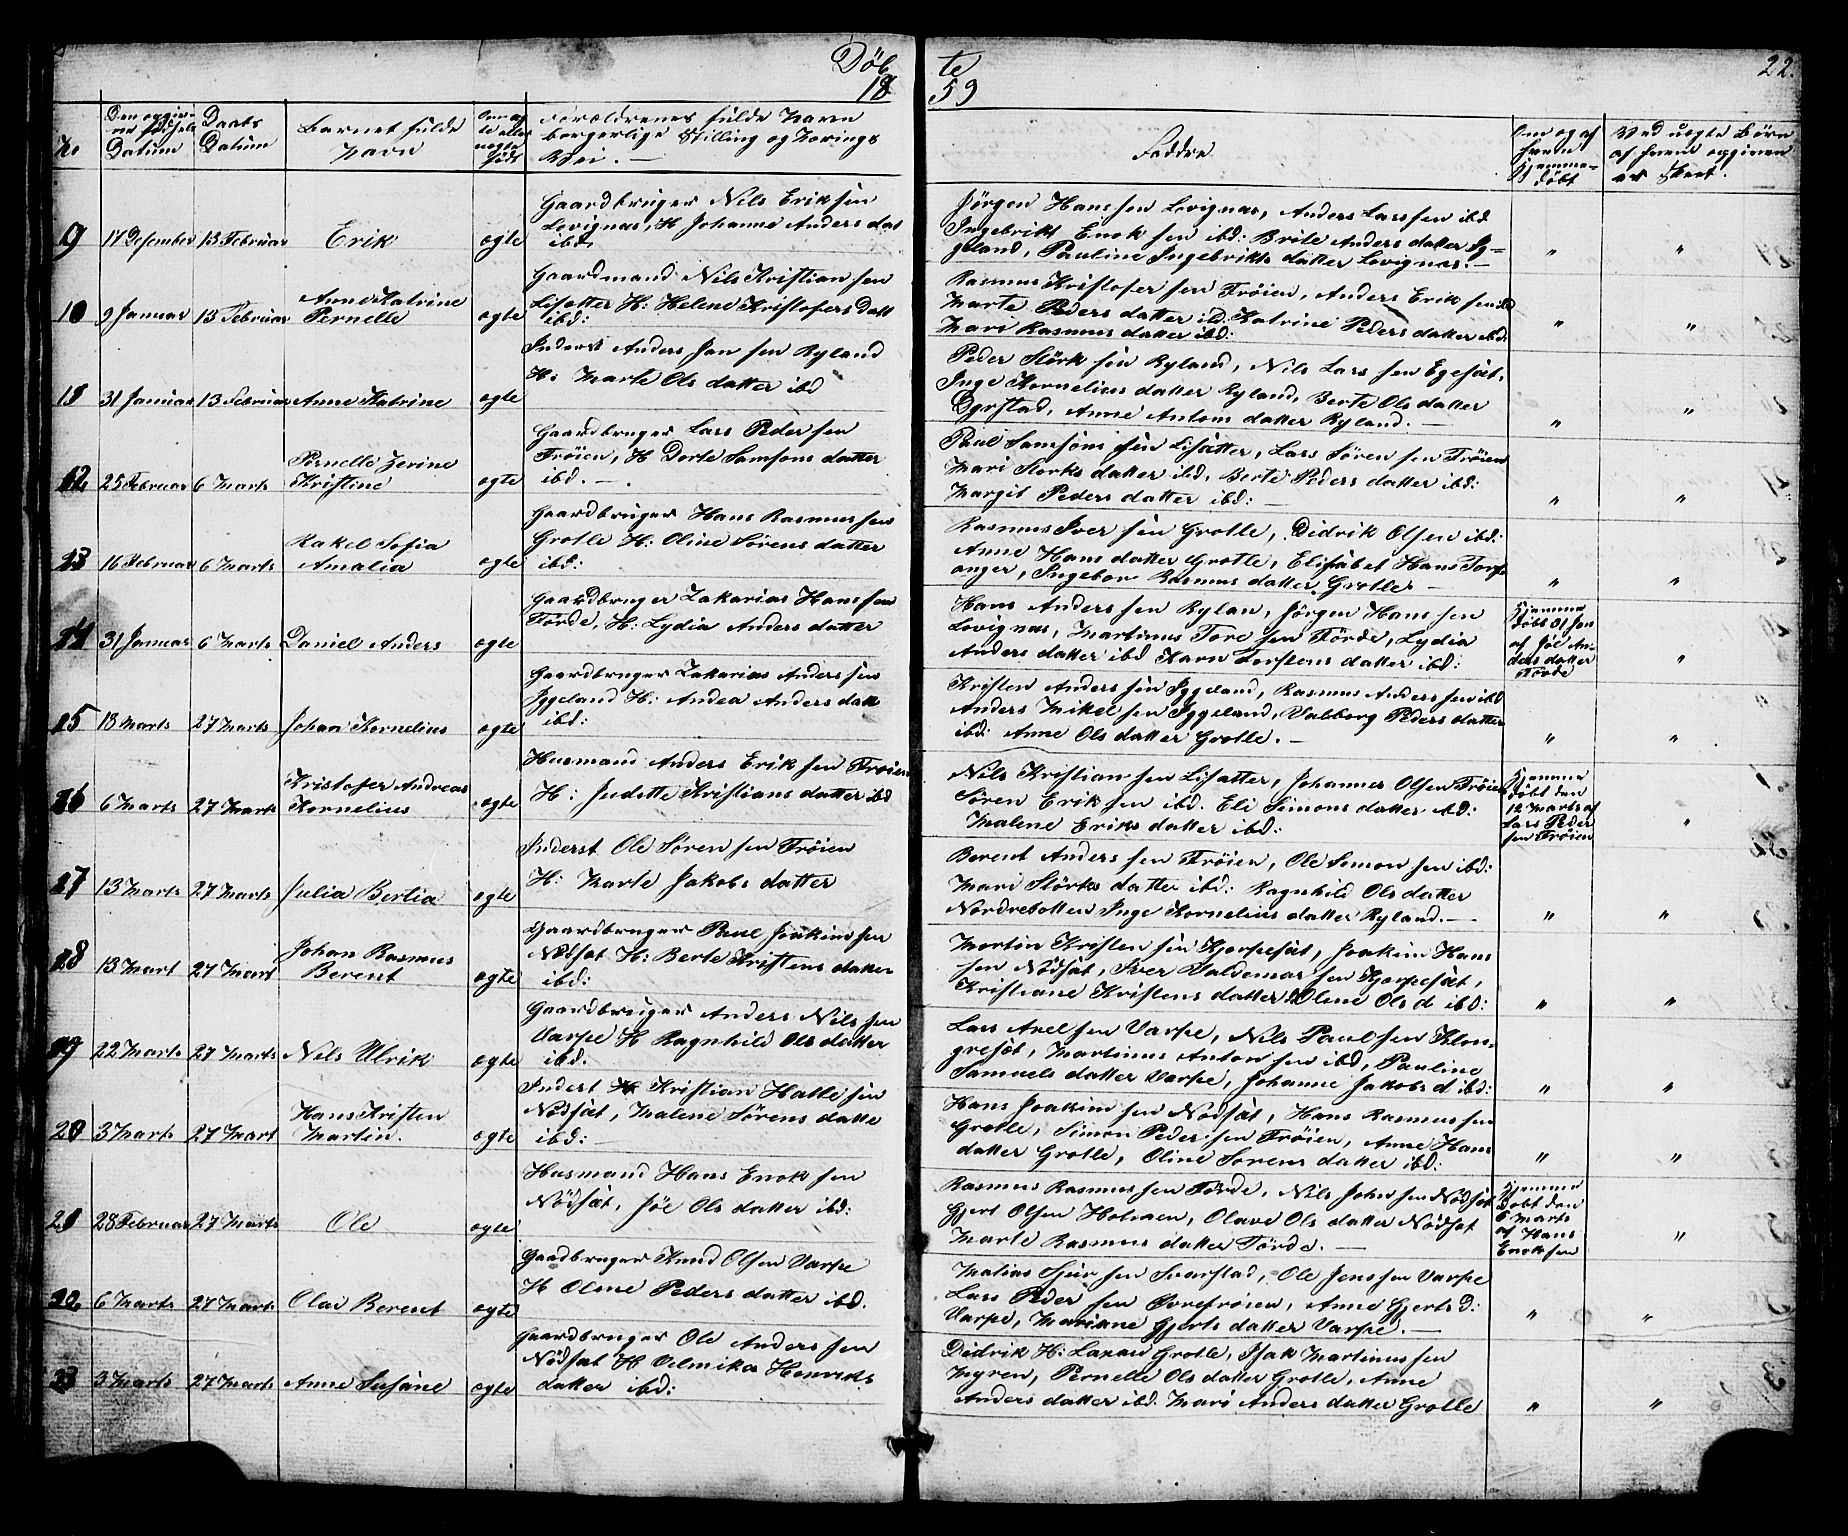 Döb
te
1859
22.
No.
Den opgiv-
ne födsels
Datum
Daabs
Datum
Barnet fulde
Navn
Om æg
te eller
uægte
födt
Forældrenes fulde Navn
borgerlige Stilling og Værings
Faddre
Om og af
hvem
hjemme-
döbt
Ved uegte Börn
af hvem opgiven
er skeet.
9 17 Desember 13 Februar Erik ægte
Gaardbruger Nils Eriksen
Levignæs, H Johanne Anders dat
ibd
Jörgen Hans sen Levignæs, Anders Lars sen ibd
Ingebrikt Enok sen ibd: Brite Anders datter Ig-
geland, Pauline Ingebrikts datter Levignæs. —
" "
10 9 Januar 13 Februar
Anne Katrine
Pernelle
ægte
Gaardmand Nils Kristian sen
Lisætter H: Helene Kristofers Datt
ibd:
Rasmus Kristofer sen Fröien, Anders Erik sen ibd
Marte Peders datter ibd: Katrine Peders datter ibd:
Mari Rasmus datter ibd:
" "
11 31 Januar 13 Februar Anne Katrine ægte
Inderst Anders Jan sen Ryland
H: Marte Ols datter ibd
Peder Störk sen Ryland, Nils Lars sen Egesæt,
Inge Kornelius datter Ryland, Berte Ols datter
Dyrstad, Anne Antom datter Ryland. —
" "
12 25 Februar 6 Marts
Pernelle Zerine
Kristine
ægte
Gaardbruger Lars Peder sen
Fröien, H Dorte Samsons datter
ibd. — .
Paul Samsons sen Lisætter, Lars Sören sen Fröien
Mari Störks datter ibd, Berte Peders datter ibd:
Margit Peders datter ibd: —
" "
13 16 Februar 6 Marts
Rakel Sofia
Amalia
ægte
Gaardbruger Hans Rasmus sen
Grotle H: Oline Sörens datter
ibd:
Rasmus Iver sen Grotle, Didrik Olsen ibd:
Anne Hans datter Grotle, Elisabet Hans Torfs
anger, Ingebor Rasmus datter Grotle —
" "
14 31 Januar 6 Marts Daniel Anders ægte
Gaardbruger Zakarias Hans sen
Förde, H: Lydia Anders datter
Hans Anders sen Rylan, Jörgen Hans sen
Levignæs, Martinus Tore sen Förde, Lydia
Anders datter ibd Karn Torstens datter ibd:
Hjemme
döbt 31 Jan
af Jöe An-
ders datter
Förde
"
15 18 Marts 27 Marts Johan Kornelius ægte
Gaardbruger Zakarias Anders sen
Iggeland H: Andea Anders datt
ibd:
Kristen Anders sen Iggeland, Rasmus Anders sen ibd
Anders Mikel sen Iggeland, Valborg Peders datter
ibd: Anne Ols datter Grotle. —
" "
16 6 Marts 27 Mart
Kristofer Andreas
Kornelius
ægte
Husmand Anders Erik sen Fröien
H: Judette Kristians datter ibd
Nils Kristian sen Lisætter, Johannes Olsen Fröien
Sören Erik sen ibd. Eli Simons datter ibd:
Malene Eriks datter ibd:
Hjemme
döbt den
12 Marts af
Lars Peder
sen Fröien
"
17 13 Marts 27 Marts Julia Bertia ægte
Inderst Ole Sören sen Fröien
H: Marte Jakobs datter
Berent Anders sen Fröien, Ole Simon sen ibd:
Mari Störks datter ibd: Ragnhild Ols datter
Nordrebotten Inge Kornelius datter Ryland. —
" "
18 13 Mart 27 Mart
Johan Rasmus
Berent
ægte
Gaardbruger Paul Joakim sen
Nödsæt H: Berte Kristens datter
ibd:
Martin Kristen sen Hjorpesæt, Joakim Hans
sen Nödsæt, Iver Valdemar sen Hjorpesæt,
Kristiane Kristens datter Olene Ols d ibd:
" "
19 22 Marts 27 Marts Nils Ulrik ægte
Gaardbruger Anders Nils sen
Varpe H Ragnhild Ols datter
ibd:
Lars Axel sen Varpe, Nils Paul sen Klon-
gresæt, Martinus Anton sen ibd, Pauline
Samuels datter Varpe, Johanne Jakobs d ibd:
" "
20 3 Marts 27 Mart
Hans Kristen
Martin.
ægte
Inderst Kristian Hatle sen
Nödsæt, Malene Sörens datte
ibd: —
Hans Joakim sen Nödsæt, Hans Rasmus sen
Grotle, Simon Peder sen Fröien, Anne Hans
datter Grotle, Oline Sörens datter ibd:
" "
21 28 Februar 27 Marts Ole ægte
Husmand Hans Enok sen
Nödsæt, Jöe Ols datter ibd:
Rasmus Rasmus sen Förde, Nils John sen Nödsæt
Gjert Olsen Holmen, Olave Ols datter Nödsæt
Marte Rasmus datter Förde. —
Hjemme
döbt den
6 Marts
af Hans
Enoksen
"
22 6 Marts 27 Marts Olai Berent ægte
Gaardbruger Knud Olsen Varpe
H Oline Peders datter ibd.
Matias Sjur sen Svarstad, Ole Jens sen Varpe
Lars Peder sen Övrefröien, Anne Gjerts d:
Varpe, Mariane Gjerts datter Varpe. —
" "
23 3 Marts 27 Marts Anne Susane ægte
Gaardbruger Ole Anders sen
Nödsæt H Velmika Henriks
datter ibd:
Didrik H: Laxaa Grotle, Isak Martinus sen
Myren, Pernelle Ols datter Grotle, Anne
Anders datter ibd. Mari Anders datter Grotle
" "